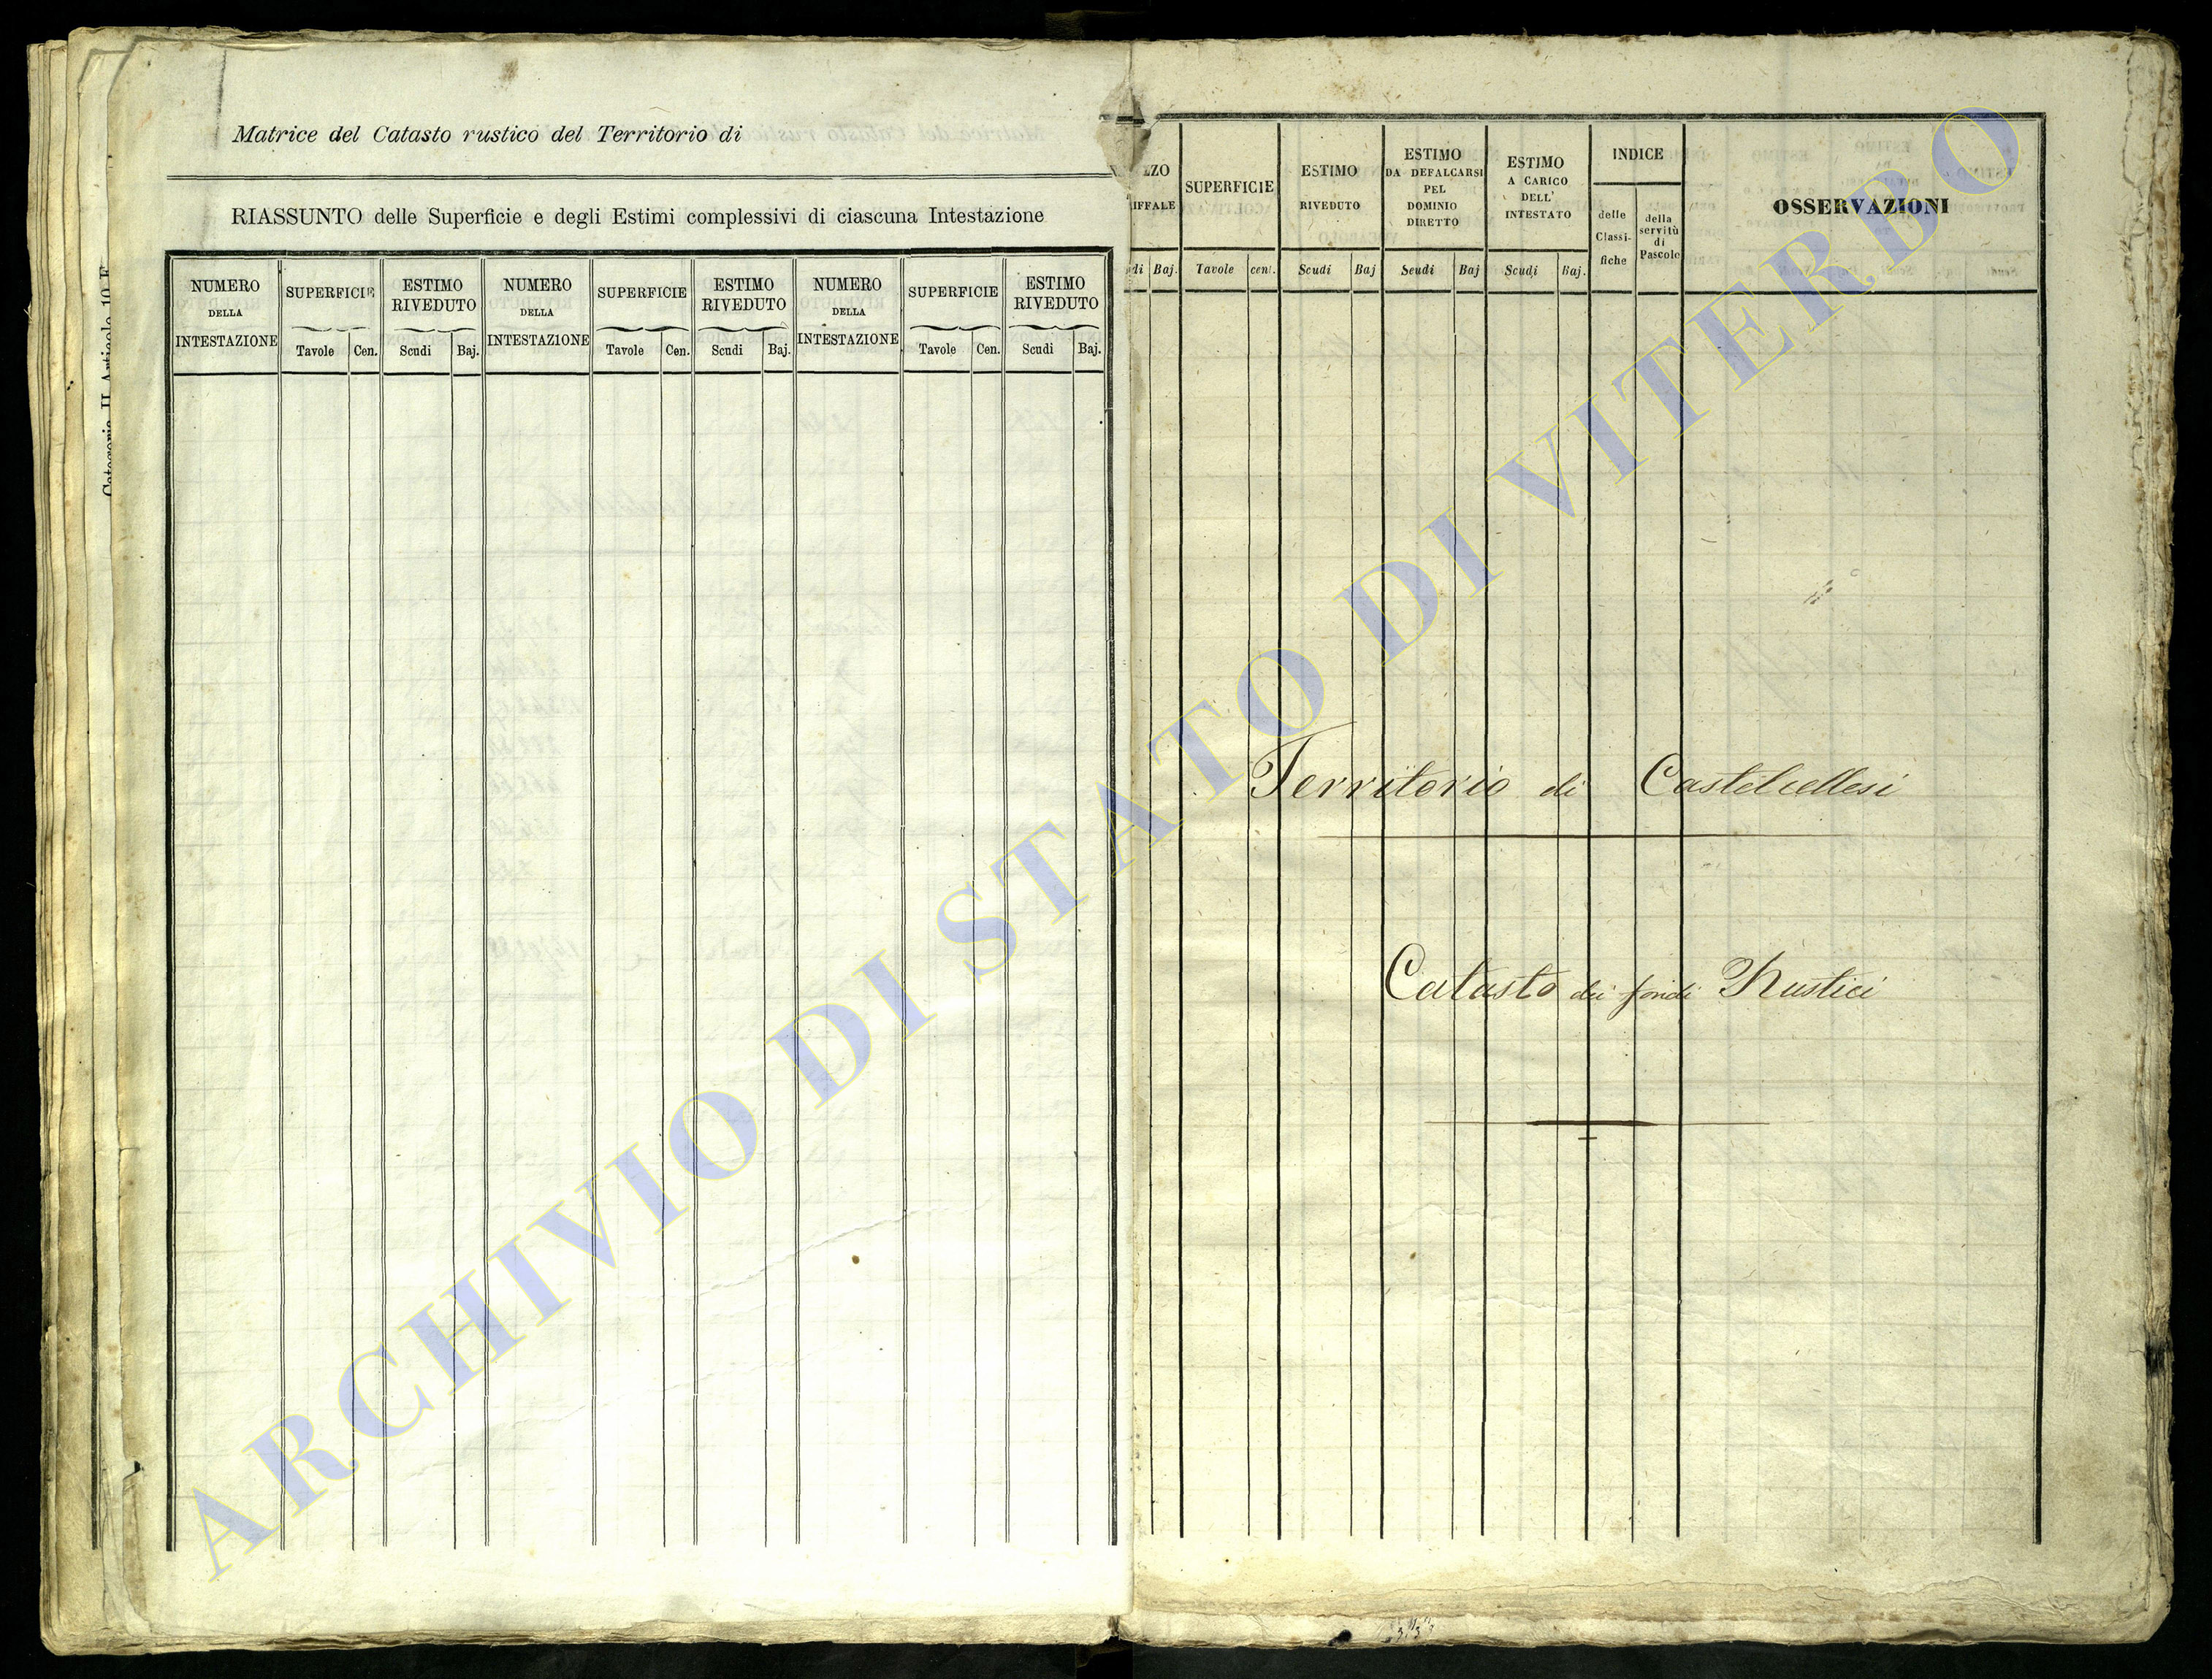 Matrice del Catasto rustico del Territorio di
RIASSUNTO delle Superficie e degli Estimi complessivi di ciascuna Intestazione
NUMERO DELLA INTESTAZIONE SUPERFICIE ESTIMO RIVEDUTO NUMERO DELLA INTESTAZIONE SUPERFICIE ESTIMO RIVEDUTO NUMERO DELLA INTESTAZIONE SUPERFICIE ESTIMO RIVEDUTO
Tavole Cen. Scudi Baj. Tavole Cen. Scudi Baj. Tavole Cen. Scudi Baj.
SUPERFICIE
ESTIMO
RIVEDUTO
ESTIMO
DA DEFALCARSI
PEL
DOMINIO
DIRETTO
ESTIMO
A CARICO
DELL'
INTESTATO
INDICE
delle
Classi-
fiche
della
servitù
di
Pascolo
OSSERVAZIONI
Baj. Tavole cent. Scudi Baj Scudi Baj Scudi Baj.
Territorio di Castelcellesi
Catasto dei fondi Rustici
ARCHIVIO DI STATO DI VITERBO